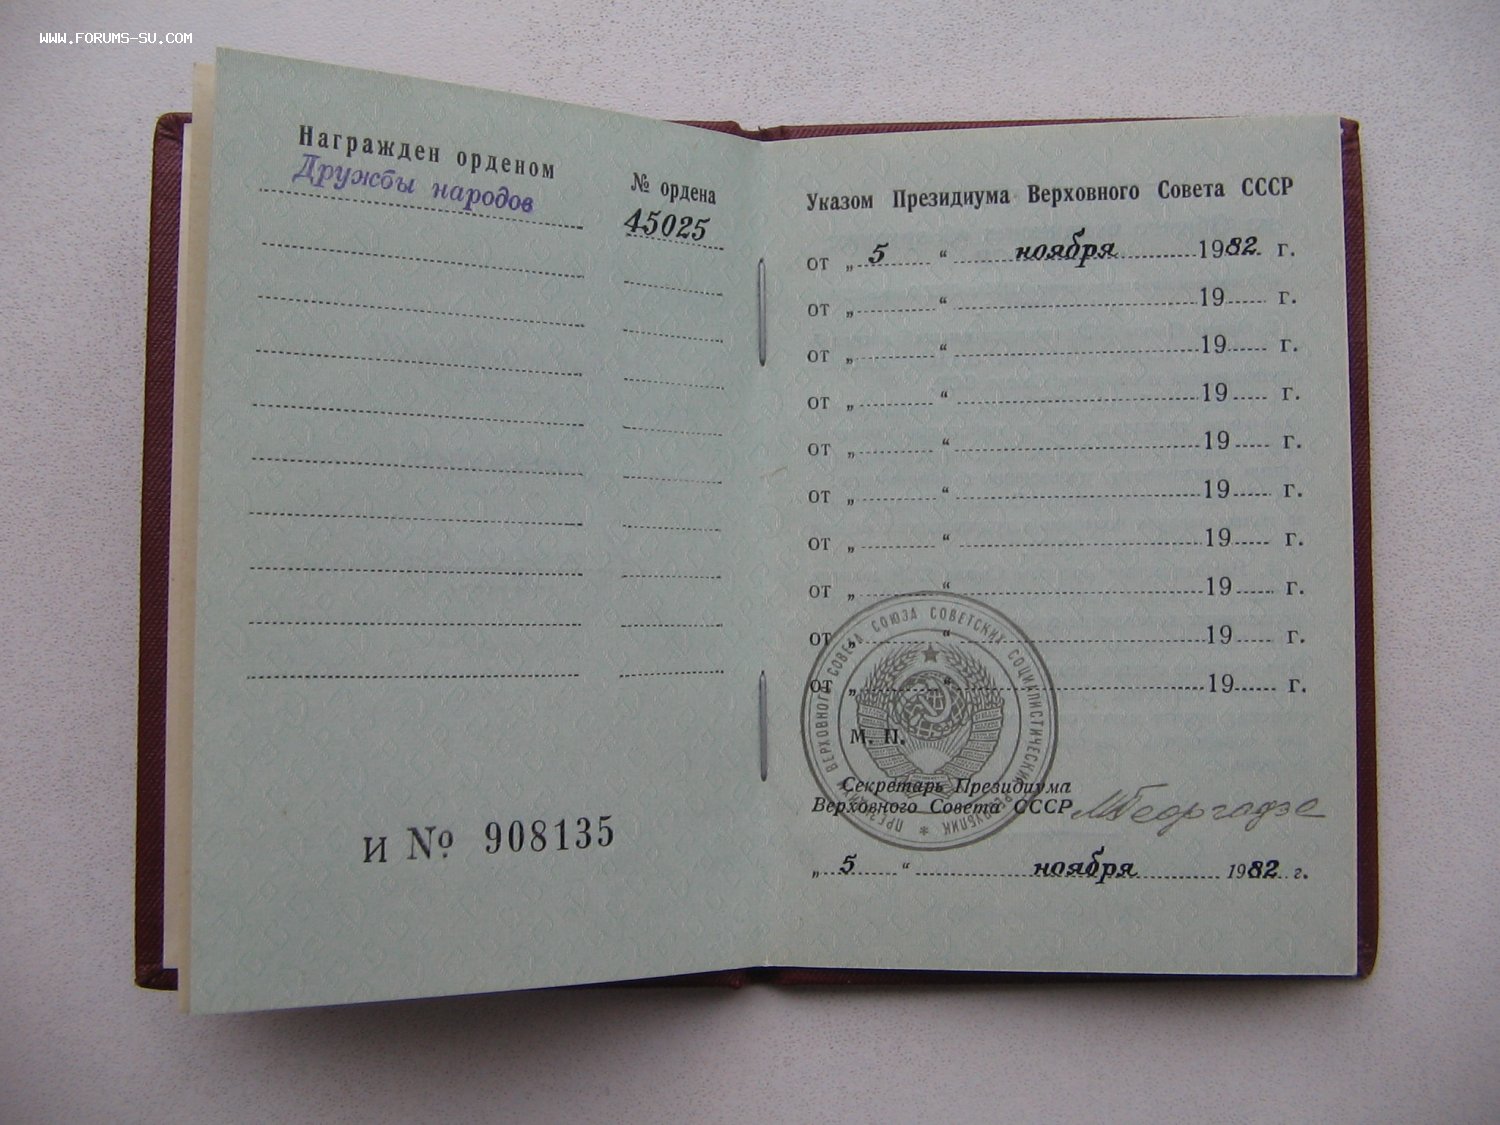 WWW.FORUMS-SU.COM
Награжден орденом
Дружбы народов
№ ордена
45025
И № 908135
Указом Президиума Верховного Совета СССР
от „ 5 “ ноября 1982 г.
от „ “ 19 г.
от „ “ 19 г.
от „ “ 19 г.
от „ “ 19 г.
от „ “ 19 г.
от „ “ 19 г.
от „ “ 19 г.
от „ “ 19 г.
от „ “ 19 г.
ПРЕЗИДИУМ ВЕРХОВНОГО СОВЕТА СОЮЗА СОВЕТСКИХ СОЦИАЛИСТИЧЕСКИХ РЕСПУБЛИК *
М. П.
Секретарь Президиума
Верховного Совета СССР
МГеоргадзе
„ 5 “ ноября 1982 г.